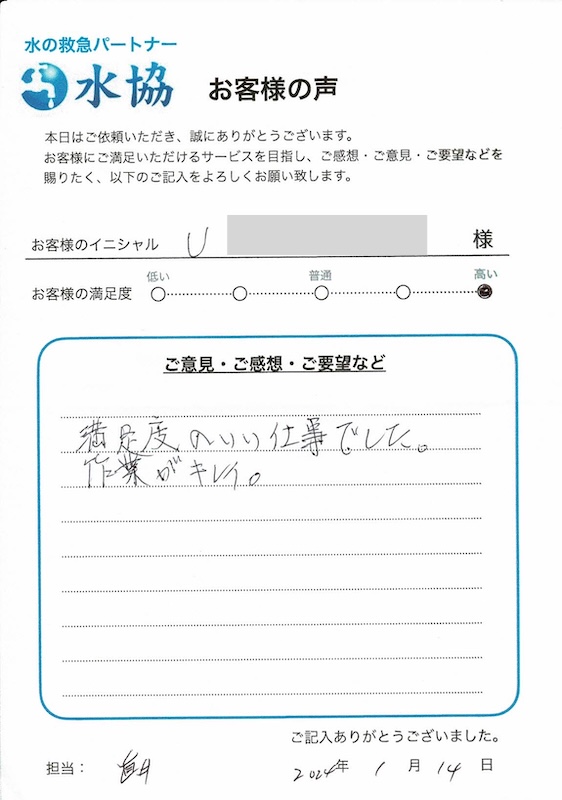 水の救急パートナー
水協 お客様の声
本日はご依頼いただき、誠にありがとうございます。
お客様にご満足いただけるサービスを目指し、ご感想・ご意見・ご要望などを
賜りたく、以下のご記入をよろしくお願い致します。
お客様のイニシャル U 様
低い 普通 高い
お客様の満足度
ご意見・ご感想・ご要望など
満足度のいい仕事でした。
作業がキレイ。
ご記入ありがとうございました。
担当： 2024年 1月 14日